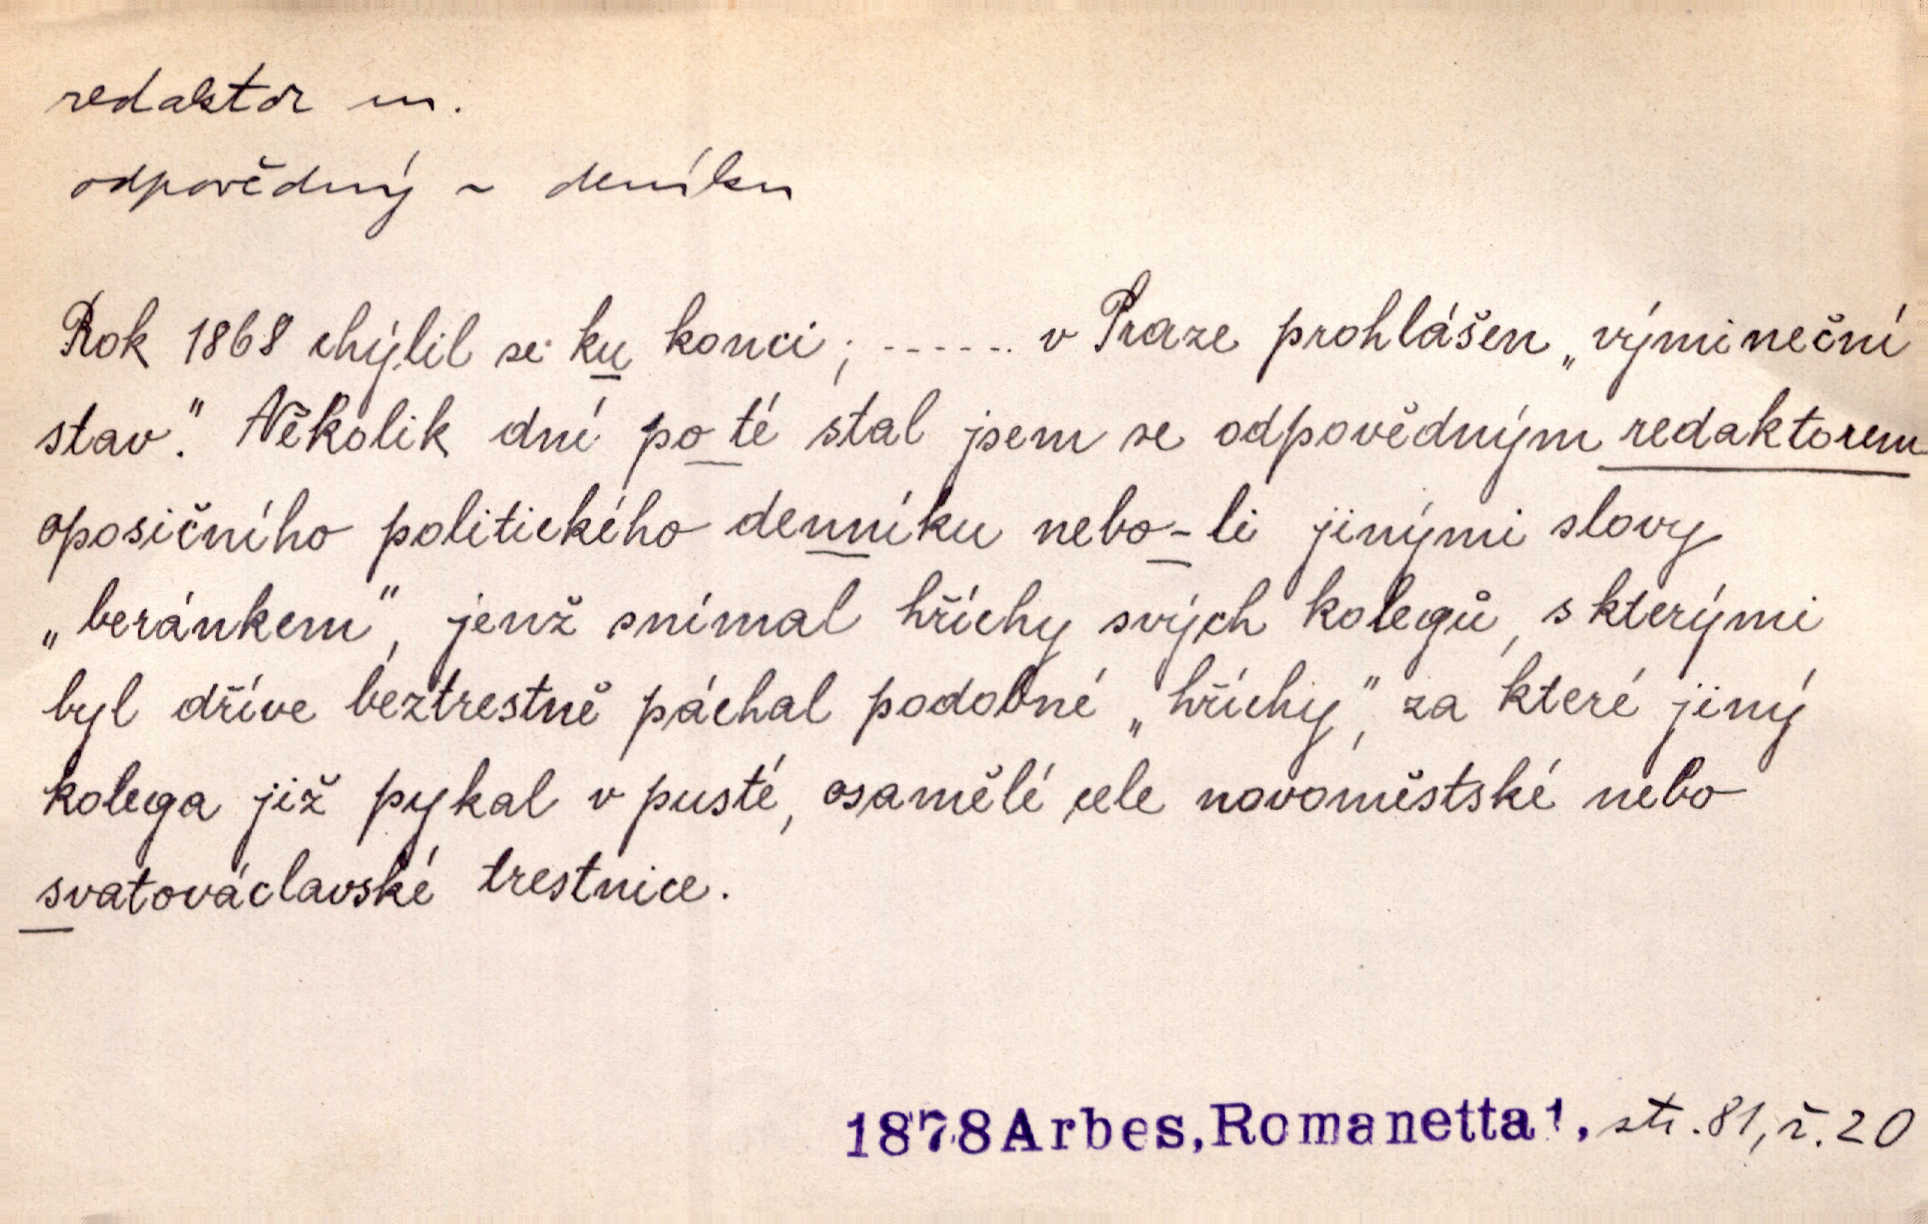 redaktor m.
odpovědný ~ deníku
Rok 1868 chýlil se ku konci; ...... v Praze prohlášen „výmineční
stav." Několik dní po té stal jsem se odpovědným redaktorem
oposičního politického denníku nebo-li jinými slovy
„beránkem", jenž snímal hříchy svých kolegů, s kterými
byl dříve beztrestně páchal podobné „hříchy", za které jiný
kolega již pykal v pusté, osamělé cele novoměstské nebo
svatováclavské trestnice.
1878 Arbes, Romanetta 1, str. 81, ř. 20